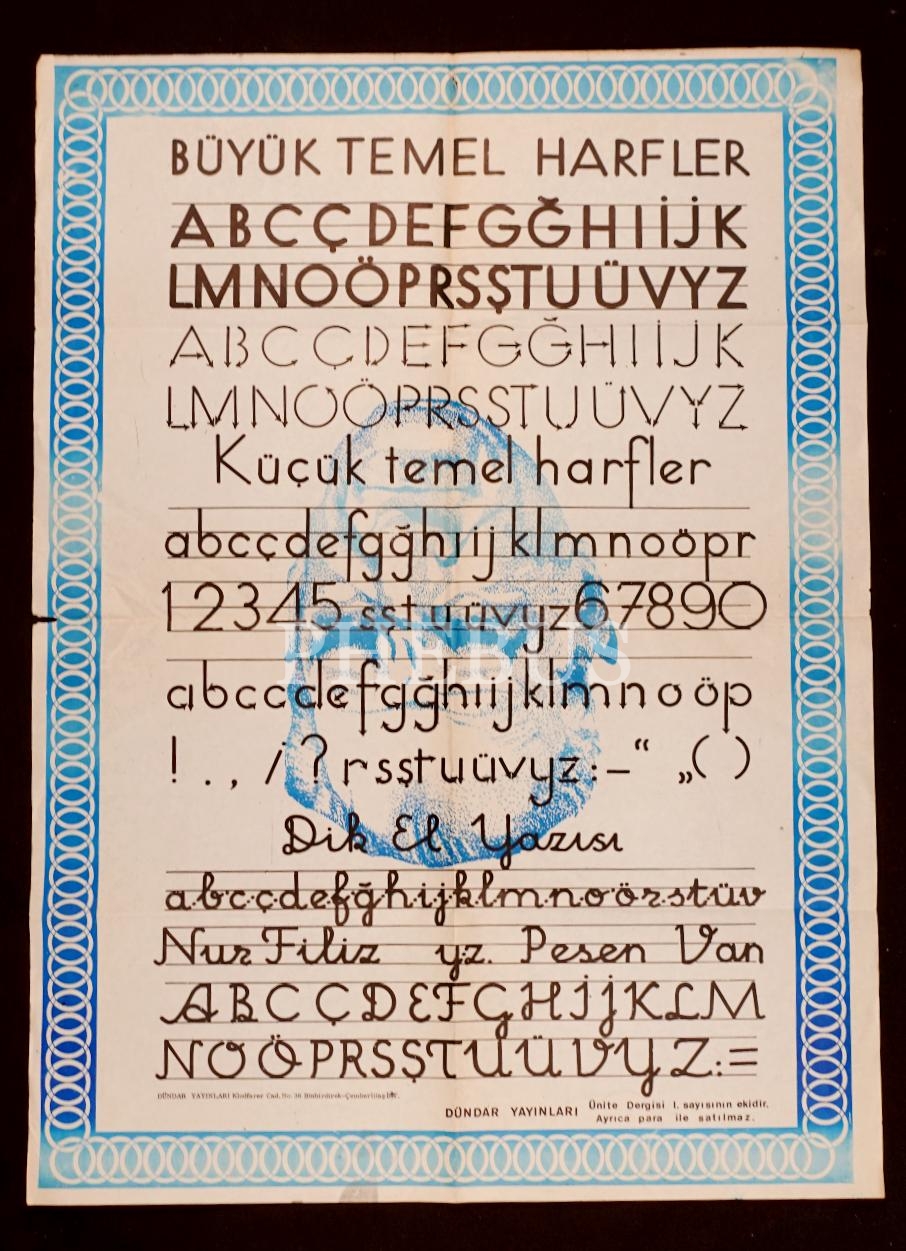 BÜYÜK TEMEL HARFLER
A B C Ç D E F G Ğ H I İ J K
L M N O Ö P R S Ş T U Ü V Y Z
A B C Ç D E F G Ğ H I İ J K
L M N O Ö P R S S T U Ü V Y Z
Küçük temel harfler
a b c ç d e f g ğ h ı i j k l m n o ö p r
1 2 3 4 5 s ş t u ü v y z 6 7 8 9 0
PHEBUS
a b c c d e f g ğ h ı i j k l m n o ö p
! . , / ? r s ş t u ü v y z : – “ „ ( )
Dik El Yazısı
a b c ç d e f ğ h i j k l m n o ö r s t ü v
Nur Filiz yz. Pesen Van
A B C Ç D E F G H İ J K L M
N O Ö P R S Ş T U Ü V Y Z : =
DÜNDAR YAYINLARI Klodfarer Cad. No. 36 Binbirdirek-Çemberlitaş
DÜNDAR YAYINLARI Ünite Dergisi 1. sayısının ekidir.
Ayrıca para ile satılmaz.